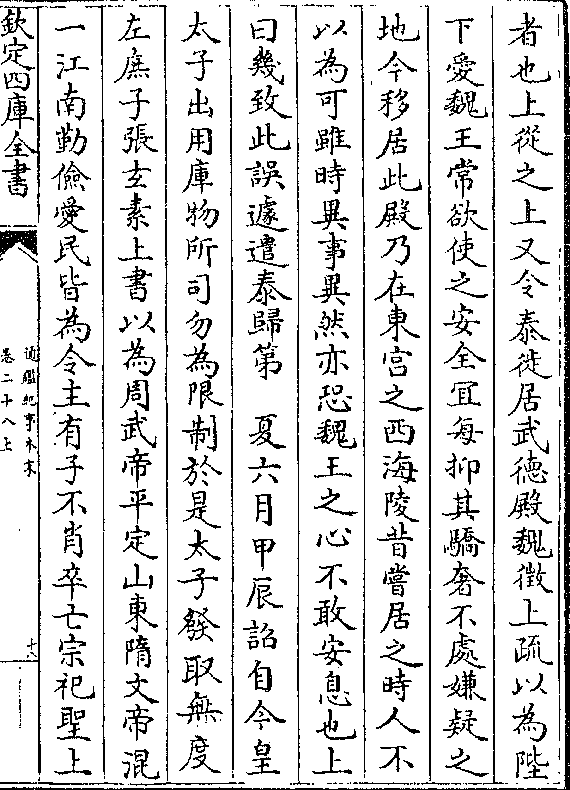 者也上從之上又令泰徙居武德殿魏徴上疏以為陛
下愛魏王常欲使之安全宜每抑其驕奢不處嫌疑之
地今移居此殿乃在東宫之西海陵昔嘗居之時人不
以為可雖時異事異然亦恐魏王之心不敢安息也上
曰幾致此誤遽遣泰歸第　夏六月甲辰詔自今皇
太子出用庫物所司勿為限制於是太子發取無度
左庶子張玄素上書以為周武帝平定山東隋文帝混
一江南勤儉愛民皆為令主有子不肖卒亡宗祀聖上
欽定四庫全書
通鑑紀事本末
卷二十八上